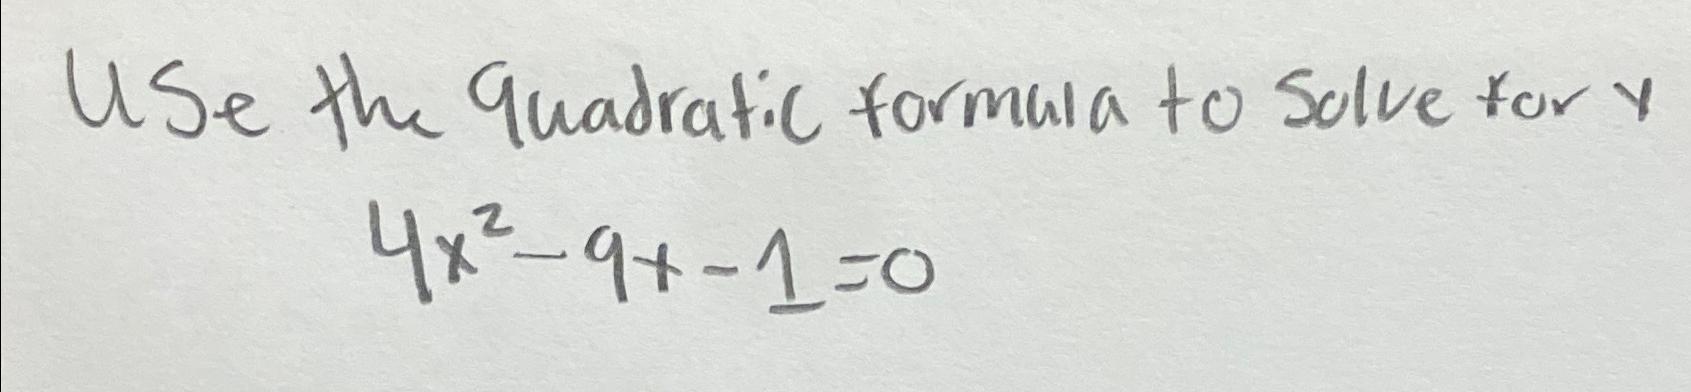 Use the quadratic formula to solve for x
4x²-9x-1=0